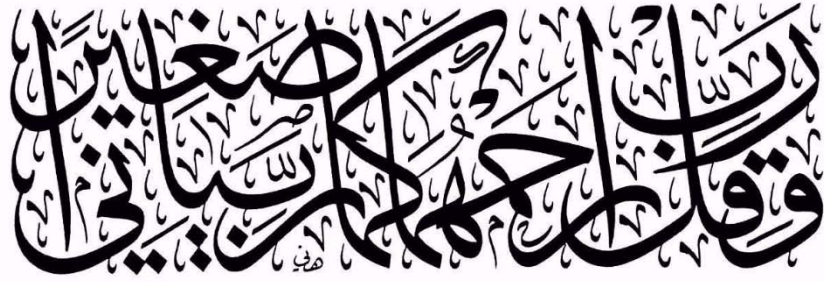 وَقُل رَّبِّ ارْحَمْهُمَا كَمَا رَبَّيَانِي صَغِيرًا
هاني